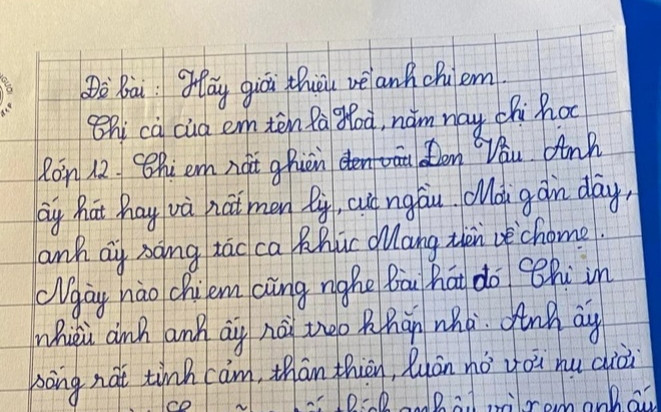 Đề bài: Hãy giới thiệu về anh chị em.
Chị cả của em tên là Hoà, năm nay chị học
lớp 12. Chị em rất ghiền đen vâu Đen Vâu. Anh
ấy hát hay và rất men lỳ, cực ngầu. Mới gần đây,
anh ấy sáng tác ca khúc Mang tiền về cho mẹ.
Ngày nào chị em cũng nghe bài hát đó. Chị in
nhiều ảnh anh ấy rồi treo khắp nhà. Anh ấy
sống rất tình cảm, thân thiện, luôn nở với nụ cười
anh ấy và xem anh ấy